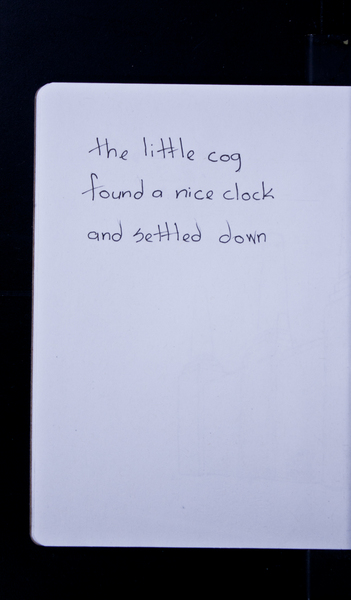 the little cog
found a nice clock
and settled down